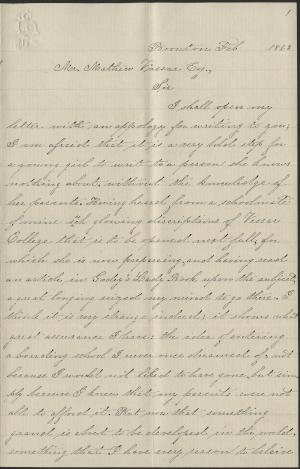 1
Boonton Feb 1863
Mr. Mathew Vassar Esq.,
Sir
I shall open my
letter with an appology for writing to you;
I am afraid that it is a very bold step for
a young girl to writ to a person she knows
nothing about, without the knowledge of
her parents. Having heard from a schoolmate
of mine glowing discriptions of Vassar
College that is to be opened next fall, for
which she is now prepairing, and having read
an article in Godey's Lady Book upon the subject,
a great longing seized my mind to go there. I
think it is very strange indeed; it shows what
great assurance I have: the idea of entering
a boarding school I never once dreamed of, not
because I would not liked to have gone, but sim
ply because I knew that my parents were not
able to afford it. But now that something
grand, is about to be developed in the world,
something that I have every reason to believe